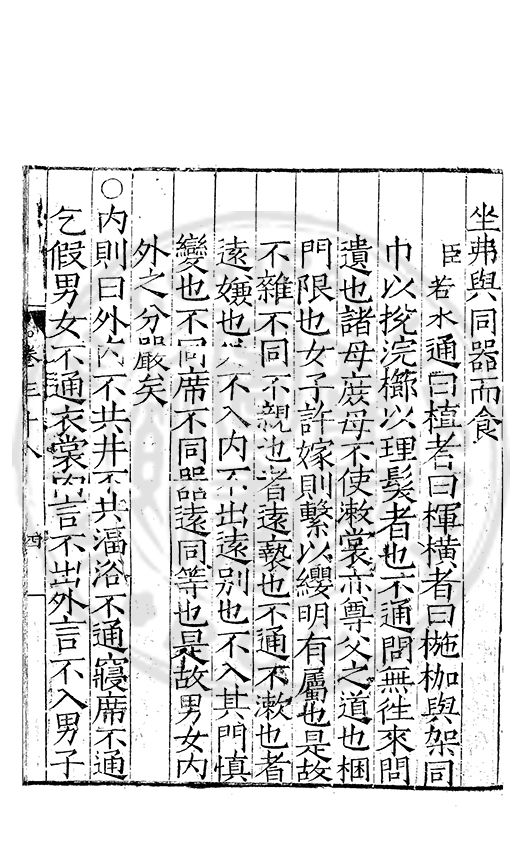 坐弗與同器而食
臣若水通曰植者曰楎橫者曰椸枷與架同
巾以挩浣櫛以理髮者也不通問無徃來問
遺也諸母庻母不使漱裳亦尊父之道也梱
門限也女子許嫁則繫以纓明有屬也是故
不雜不同不親也者遠䙝也不通不漱也者
遠嫌也不入內不出遠别也不入其門慎
變也不同席不同器遠同等也是故男女内
外之分嚴矣
○内則曰外内不共井不共湢浴不通寢席不通
乞假男女不通衣裳内言不出外言不入男子
卷三十八
四